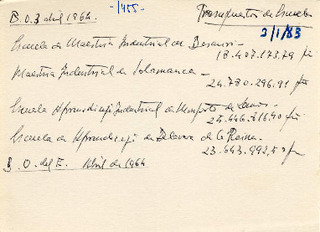 B.O. 3 abril 1964. -1955- Presupuestos de Escuelas
2/1/83
Escuela de Maestria Industrial de
18.407.173,79 pts
Maestria Industrial de Salamanca -
24.780.296,91 pts
Escuela Aprendizaje Industrial de Monforte de Lemos -
Escuela de Aprendizaje de Talavera de la Reina -
23.643.992,5
B.O. del E. Abril de 1964